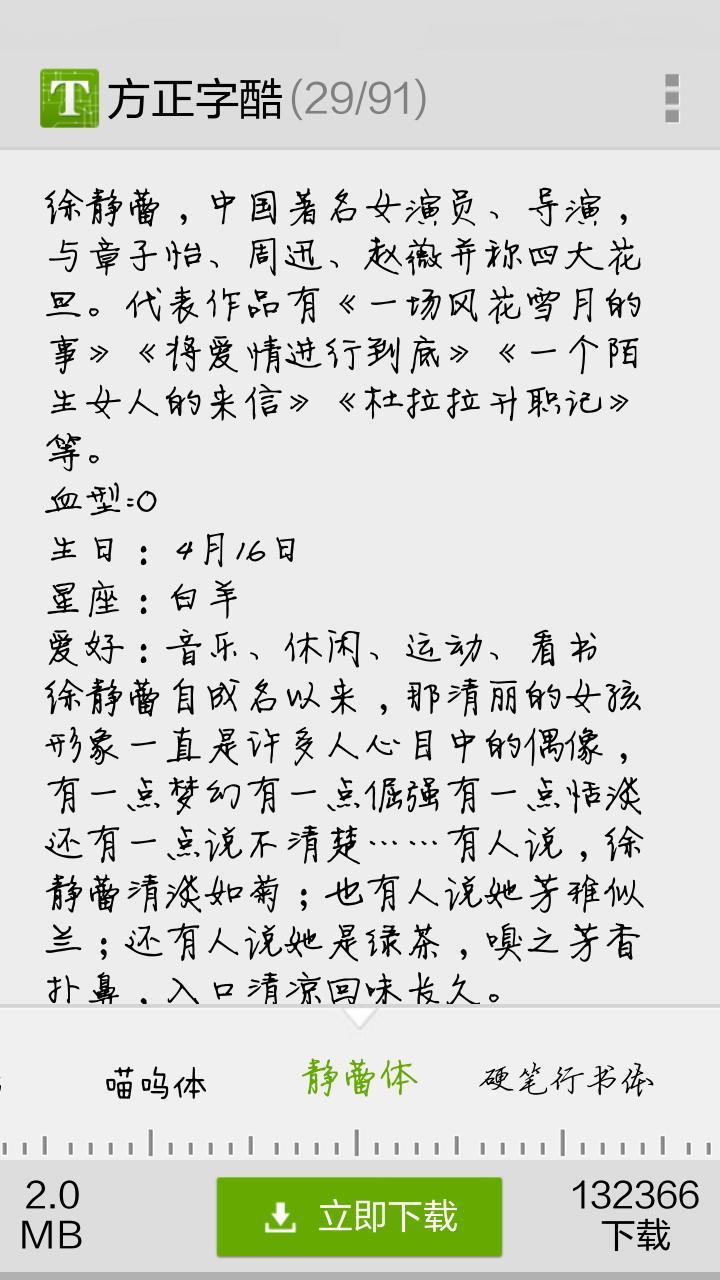 方正字酷(29/91)
徐静蕾，中国著名女演员、导演，
与章子怡、周迅、赵薇并称四大花
旦。代表作品有《一场风花雪月的
事》《将爱情进行到底》《一个陌
生女人的来信》《杜拉拉升职记》
等。
血型:O
生日：4月16日
星座：白羊
爱好：音乐、休闲、运动、看书
徐静蕾自成名以来，那清丽的女孩
形象一直是许多人心目中的偶像，
有一点梦幻有一点倔强有一点恬淡
还有一点说不清楚……有人说，徐
静蕾清淡如菊；也有人说她芳雅似
兰；还有人说她是绿茶，嗅之芳香
扑鼻，入口清凉回味长久。
喵呜体 静蕾体 硬笔行书体
2.0 MB 立即下载 132366 下载